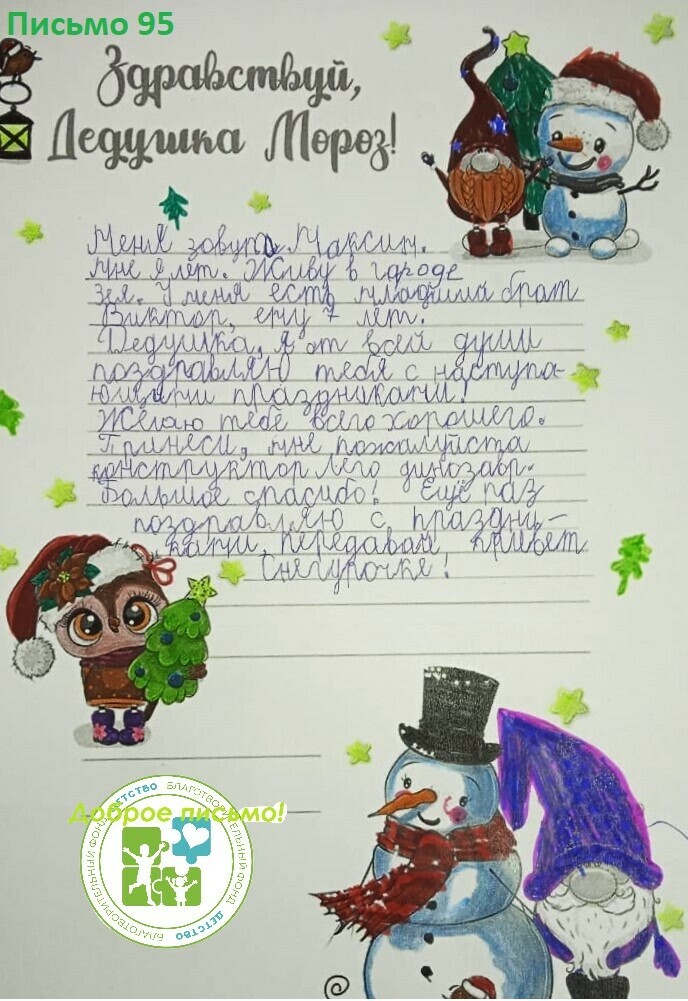 Письмо 95
Здравствуй,
Дедушка Мороз!
Меня зовут Максим.
Мне лет. Живу в городе
Зея. У меня есть младший брат
Виктор, ему 7 лет.
Дедушка, я от всей души
поздравляю тебя с наступа-
ющими праздниками!
Желаю тебе всего хорошего.
Принеси, мне пожалуйста
конструктор Лего динозавр.
Большое спасибо! Ещё раз
поздравляю с праздни-
ками, передавай привет
Снегурочке!
Доброе письмо!
БЛАГОТВОРИТЕЛЬНЫЙ ФОНД ДЕТСТВО
БЛАГОТВОРИТЕЛЬНЫЙ ФОНД ДЕТСТВО